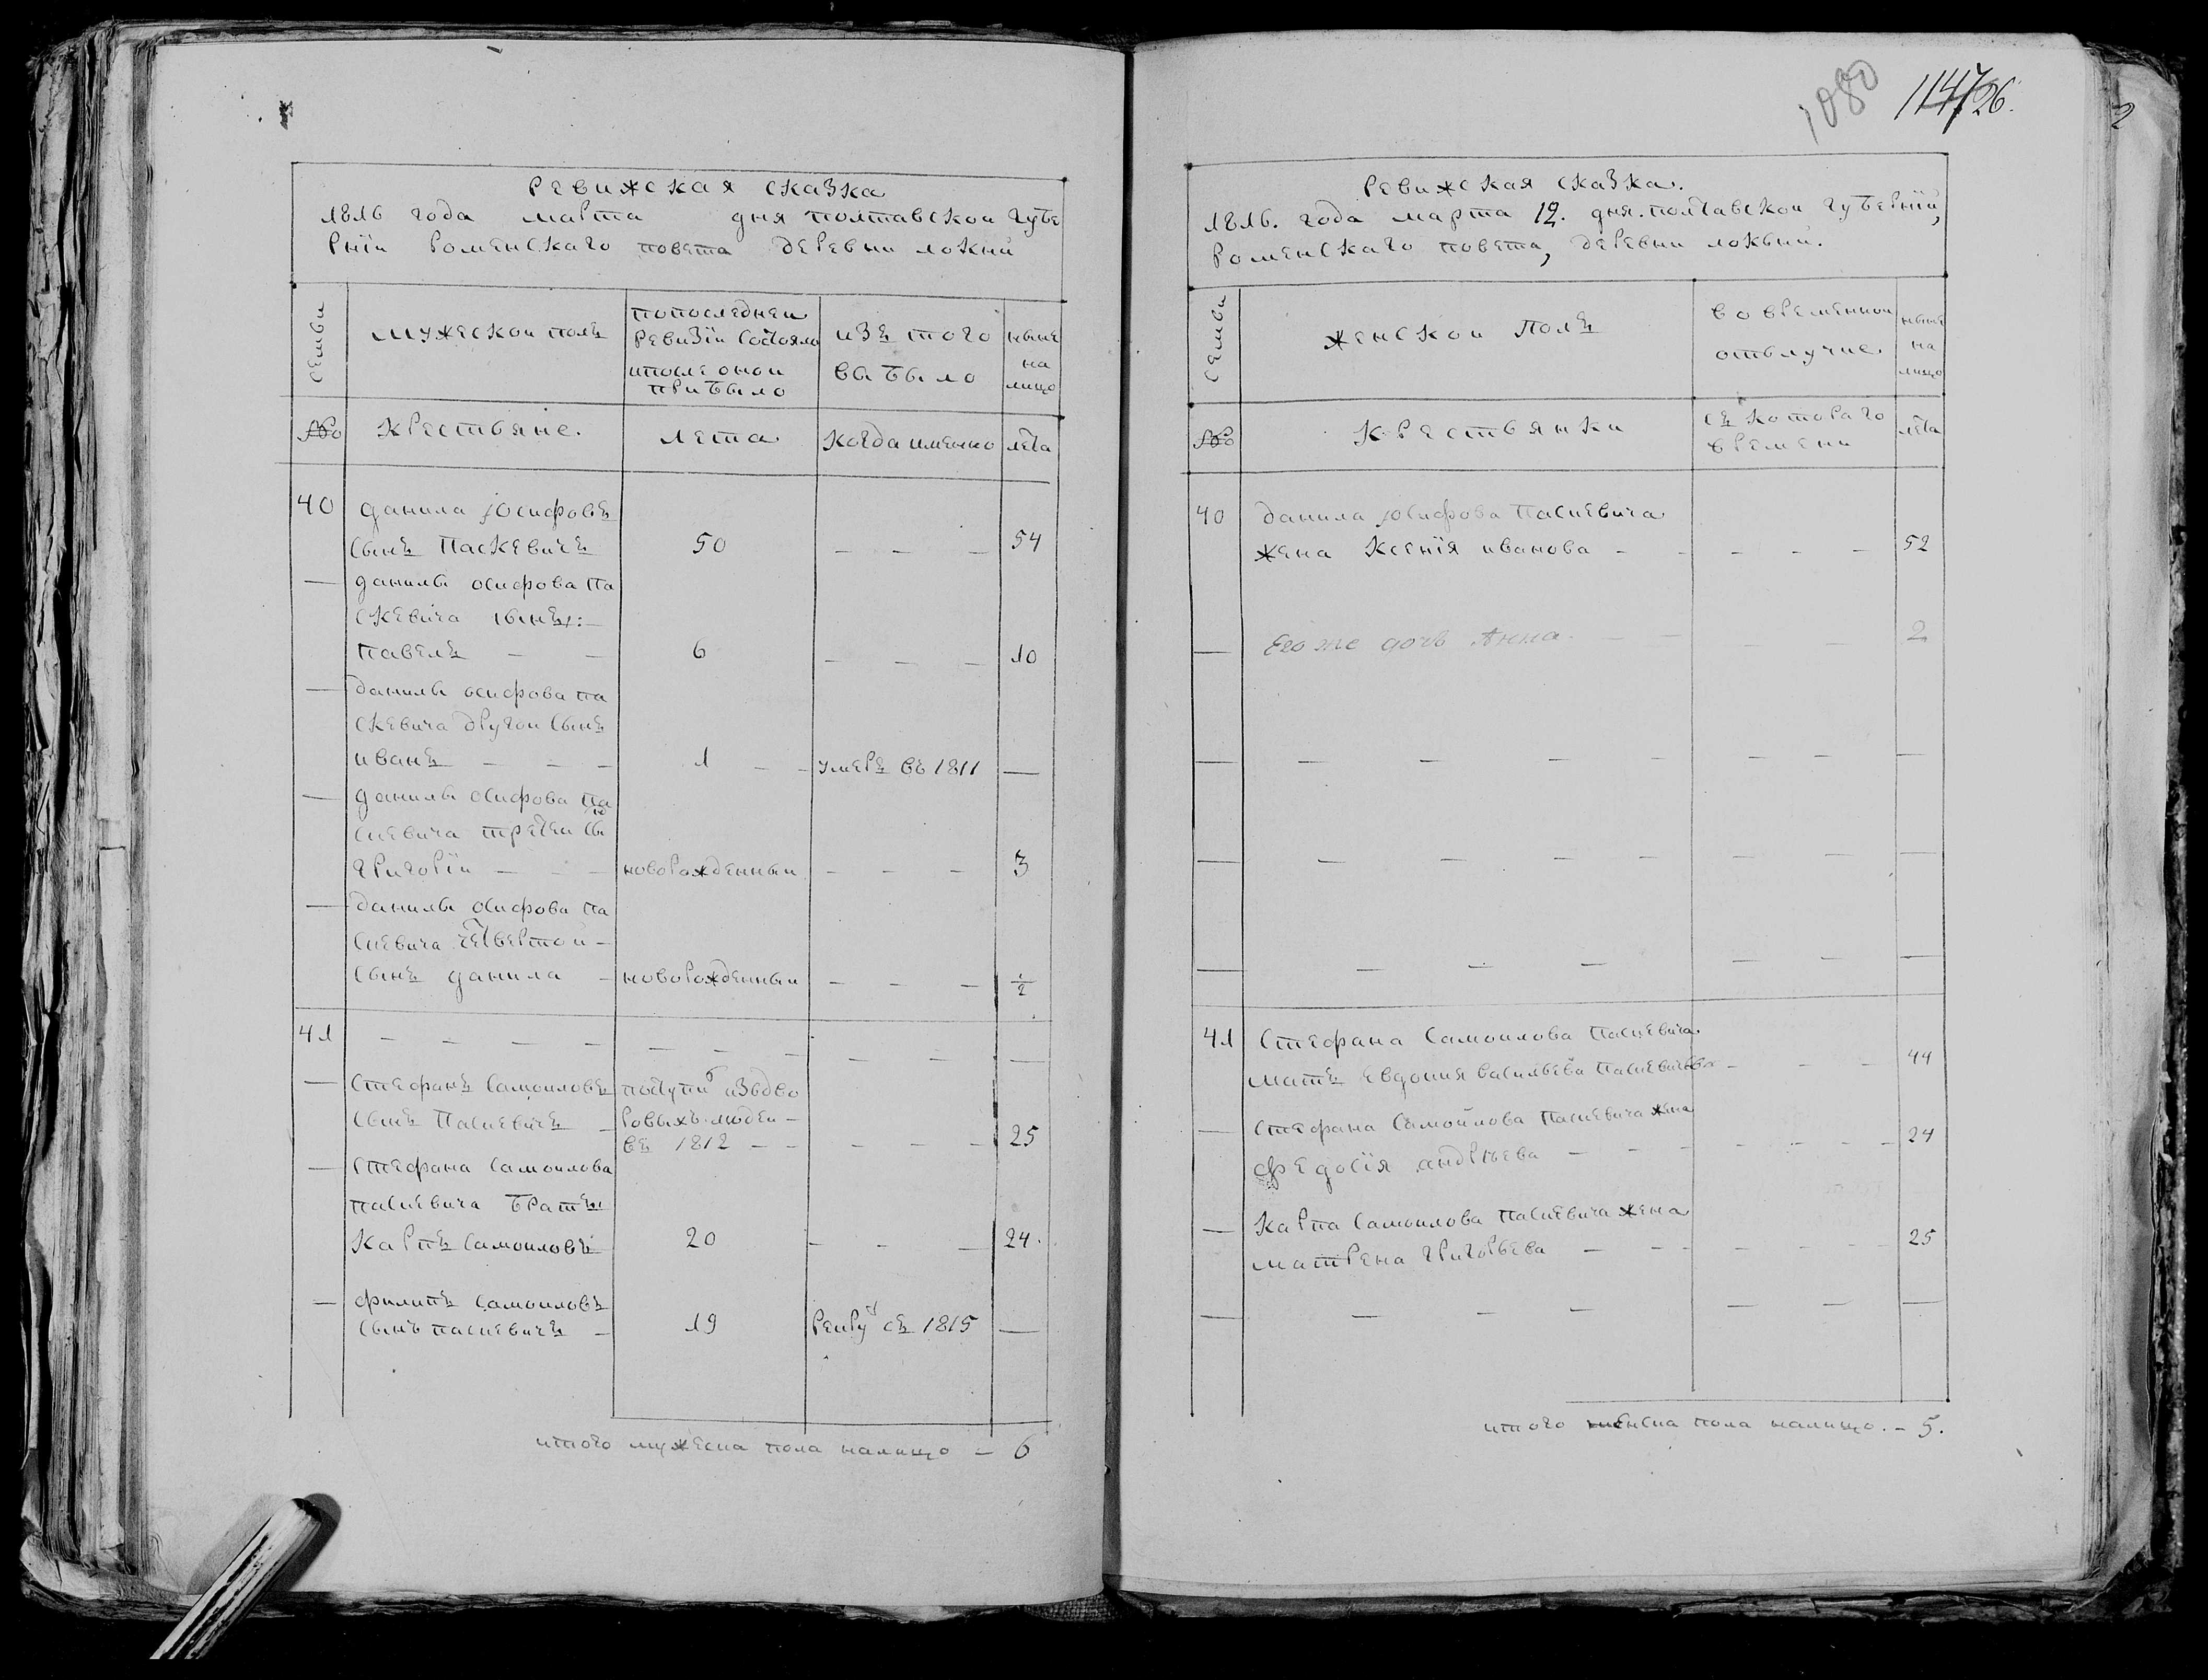 Ревижская сказка
1816 года марта дня полтавской губе
рніи роменскаго повета деревни локни
семьи
мужескои полъ
попоследней
ревизіи состояло
ипосле оной
прибыло
изъ того
выбыло
ныне
на
лицо
№
крестьяне.
лета
когда именно
лета
40
данила іосифовъ
сынъ Паскевичъ
50
— — —
54
— данилы осифова па
скевича сынъ:—
павелъ — —
6
— — —
10
— данилы осифова па
скевича другои сынъ
иванъ — — —
1
умеръ въ 1811
—
— данилы осифова па
скевича третеи сынъ
григоріи — — —
новорожденныи
— — —
3
— данилы осифова па
скевича четвертои —
сынъ данила —
новорожденныи
— — —
1/2
41
— — — —
— — —
— —
—
— Стефанъ Самоиловъ
сынъ Паскевичъ —
поступи изъдво
ровыхъ людеи —
въ 1812 — —
— — —
25
— Стефана Самоилова
паскевича братъ
Карпъ Самоиловъ
20
— — —
24.
— филипъ Самоиловъ
сынъ паскевичъ —
19
рекру съ 1815
—
итого мужеска пола налицо — 6
1080
1147
26.
2
Ревижская сказка.
1816. года марта 12. дня. полтавской губерніи,
роменскаго повета, деревни локьни.
семьи
женской полъ
во временнои
отьлучке.
ныне
на
лицо
№
крестьянки
съ котораго
времени
лета
40
данила іосифова Паскевича
жена Ксенія иванова — —
— —
52
— Его же дочь Анна. — —
— —
2
— — — — — — — —
— — — — — — — —
— — — — — — —
41
Стефана Самоилова Паскевича
мать Евдокия васильева Паскевичева —
— —
44
— Стефана Самойлова Паскевича жена
федосія андреева — — —
— — — —
24
— Карпа Самоилова паскевича жена
матрена григорьева — — —
— — —
25
— — — — — — —
итого женска пола налицо. — 5.